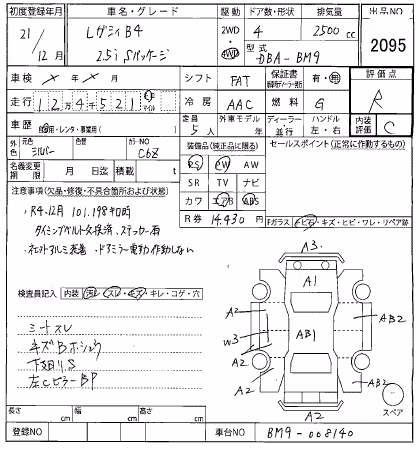 初度登録年月 車名・グレード 駆動 ドア数・形状 排気量 出品NO
21/12月 レガシィ B4 2WD 4WD 4 2500 cc 2095
2.5i Sパッケージ 型式 DBA-BM9
車検 × 年 × 月 シフト FAT 保証書 有・無 評価点
走行 124521 km マイル 冷房 AAC 燃料 G R
車歴 自家用・レンタ・事業用( ) 定員 5人 外車モデル 年 ディーラー 並行 ハンドル 左・右 内装評価 C
外色 元色 シルバー 色替 カラーNO C6Z 装備品(純正品に限る) セールスポイント(正常に動作するもの)
名義変更期限 月 日迄 積載 t PS PW AW
SR TV ナビ
注意事項(欠品・修復・不具合箇所および状態) カワ エアB ABS
・R4.12月 101,198キロ時 R券 14,430 円 Fガラス トビ石・キズ・ヒビ・ワレ・リペア跡
タイミングベルト交換済、ステッカー有
・社外アルミ装着 ・ドアミラー電動作動しない
検査員記入 内装 汚レ・スレ・キズ・キレ・コゲ・穴
シートスレ
キズBホシュウ
下廻りS
左CピラーBP
A3
A1
A2
W3
A2
A2
AB1
AB2
AB2
A2
スペア
長さ cm 幅 cm 高さ cm
登録NO 車台NO BM9-008140